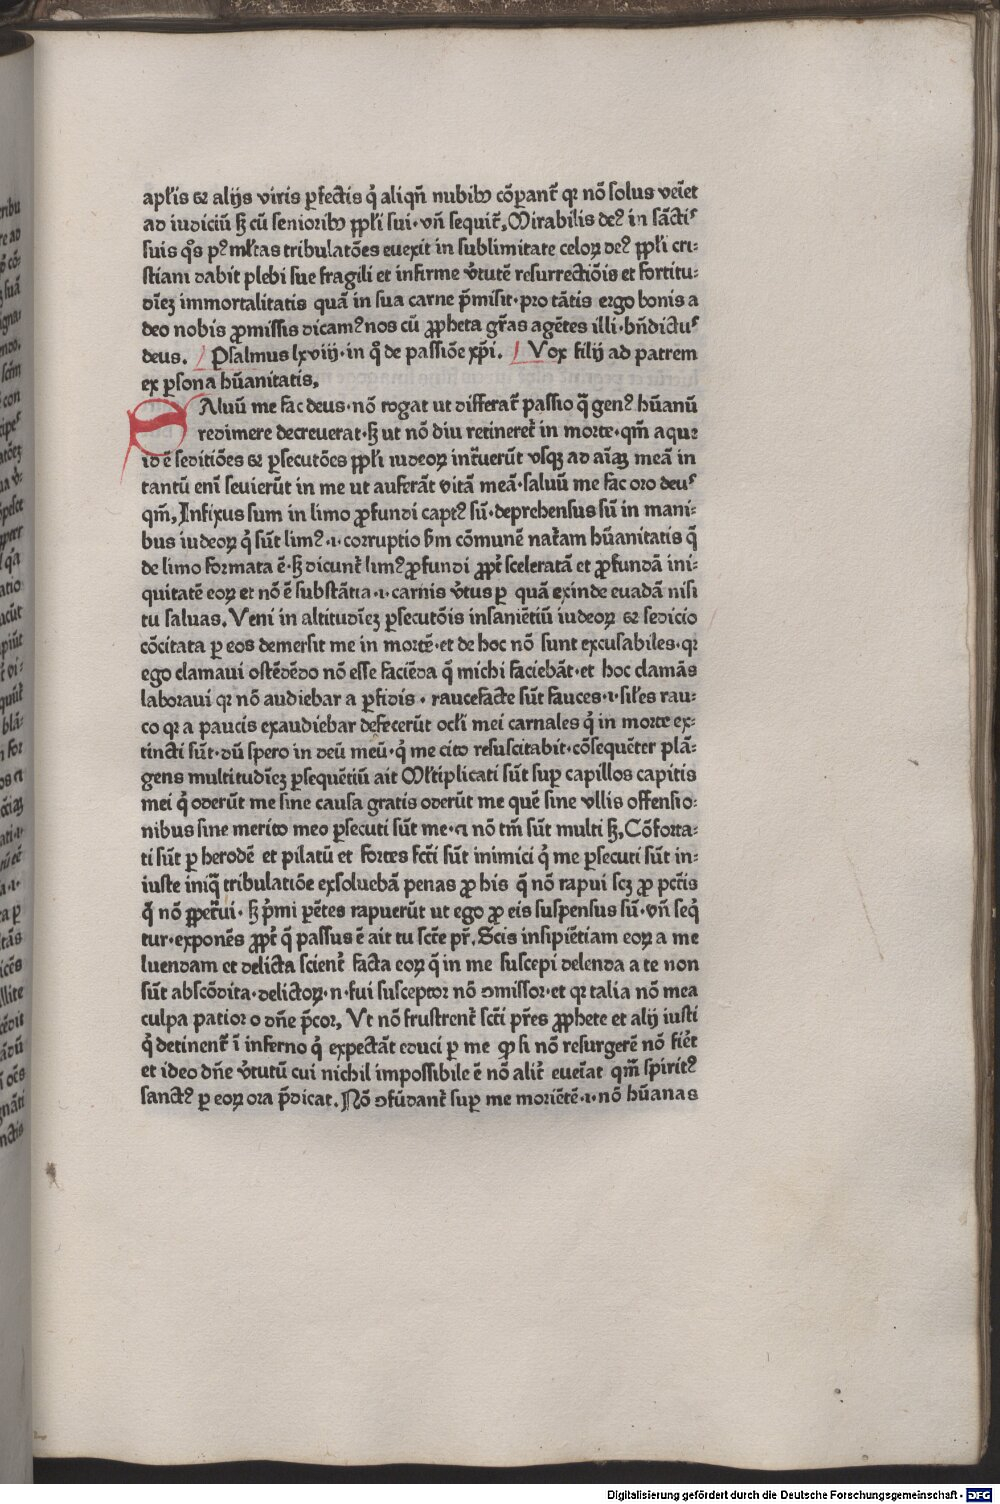 apl'is et alijs viris ꝑfectis q̇ aliqñ nubibꝫ cõpant̉ qꝛ nõ solus veĩet
ad iudiciũ sꝫ cũ senioribꝫ ppl'i sui·vñ sequit̉, Mirabilis deꝰ in sãctis
suis qͦs pꝰ ml'tas tribulatões euexit in sublimitate celoꝝ deꝰ ppl'i cri-
stiani dabit plebi sue fragili et infirme v̉tutẽ resurrectiõis et fortitu-
dĩeꝫ immortalitatis quã in sua carne p̃misit·pro tãtis ergo bonis a
deo nobis ꝓmissis dicamꝰ nos cũ ꝓpheta gr̃as agẽtes illi·bñdictus
deus. Psalmus lxviij·in q̊ de passiõe xp̃i. Vox filij ad patrem
ex ꝑsona hũanitatis,
SAluũ me fac deus·nõ rogat ut differat̉ passio q̃ genꝰ hũanũ
redimere decreuerat·sꝫ ut nõ diu retineret̉ in morte·qm̃ aque
id ẽ seditiões et ꝑsecutões ppl'i iudeoꝝ int̉uerũt vsqꝫ ad aĩaꝫ meã in
tantũ eni seuierũt in me ut auferãt vitã meã·saluũ me fac oro deus
qm̃, Infixus sum in limo ꝓfundi captꝰ sũ·deprehensus sũ in mani-
bus iudeoꝝ q̇ sũt limꝰ·i·corruptio ẜm cõmunẽ nat̉am hũanitatis q̃
de limo formata ẽ·sꝫ dicunt̉ limꝰ ꝓfundi ꝓpt̉ sceleratã et ꝓfundã ini-
quitatẽ eoꝝ et nõ ẽ substãtia·i·carnis v̉tus ꝑ quã exinde euadã nisi
tu saluas, Veni in altitudĩeꝫ ꝑsecutõis insaniẽtiũ iudeoꝝ et sedicio
cõcitata ꝑ eos demersit me in mortẽ·et de hoc nõ sunt excusabiles·qꝛ
ego clamaui ostẽdẽdo nõ esse faciẽda q̃ michi faciebãt·et hoc clamãs
laboraui qꝛ nõ audiebar a ꝑfidis·raucefacte sũt fauces·i·sil'es rau-
co qꝛ a paucis exaudiebar defecerũt ocl'i mei carnales q̇ in morte ex-
tincti sũt·dũ spero in deũ meũ·q̇ me cito resuscitabit·cõsequẽter plã-
gens multitudĩeꝫ ꝑsequẽtiũ ait Ml'tiplicati sũt suꝑ capillos capitis
mei q̇ oderũt me sine causa gratis oderũt me quẽ sine vllis offensio-
nibus sine merito meo ꝑsecuti sũt me·⁊ nõ tm̃ sũt multi sꝫ, Cõforta-
ti sũt ꝑ herodẽ et pilatũ et fortes fct̃i sũt inimici q̇ me ꝑsecuti sũt in-
iuste iniq̃ tribulatiõe exsoluebã penas ꝓ his q̃ nõ rapui scꝫ ꝓ pct̃is
q̃ nõ ꝑpet̉ui·sꝫ p̉mi pẽtes rapuerũt ut ego ꝓ eis suspensus sũ·vñ seq̇
tur·exponẽs ꝓpt̉ q̃ passus ẽ ait tu sct̃e pr̃, Scis insipiẽtiam eoꝝ a me
luendam et delicta scient̉ facta eoꝝ q̃ in me suscepi delenda a te non
sũt abscõdita·delictoꝝ·n·fui susceptor nõ ↄmissor·et qꝛ talia nõ mea
culpa patior o dñe p̃cor, Vt nõ frustrent̉ sct̃i pr̃es ꝓphete et alij iusti
q̇ detinent̉ ĩ inferno q̇ expectãt educi ꝑ me ꝙ si nõ resurgerẽ nõ fiẻt
et ideo dñe v̉tutũ cui nichil impossibile ẽ nõ alit̉ eueĩat qm̃ spiritꝰ
sanctꝰ ꝑ eoꝝ ora p̃dicat, Nõ ↄfũdant̉ suꝑ me moriẽtẽ·i·nõ hũanas
Digitalisierung gefördert durch die Deutsche Forschungsgemeinschaft - DFG